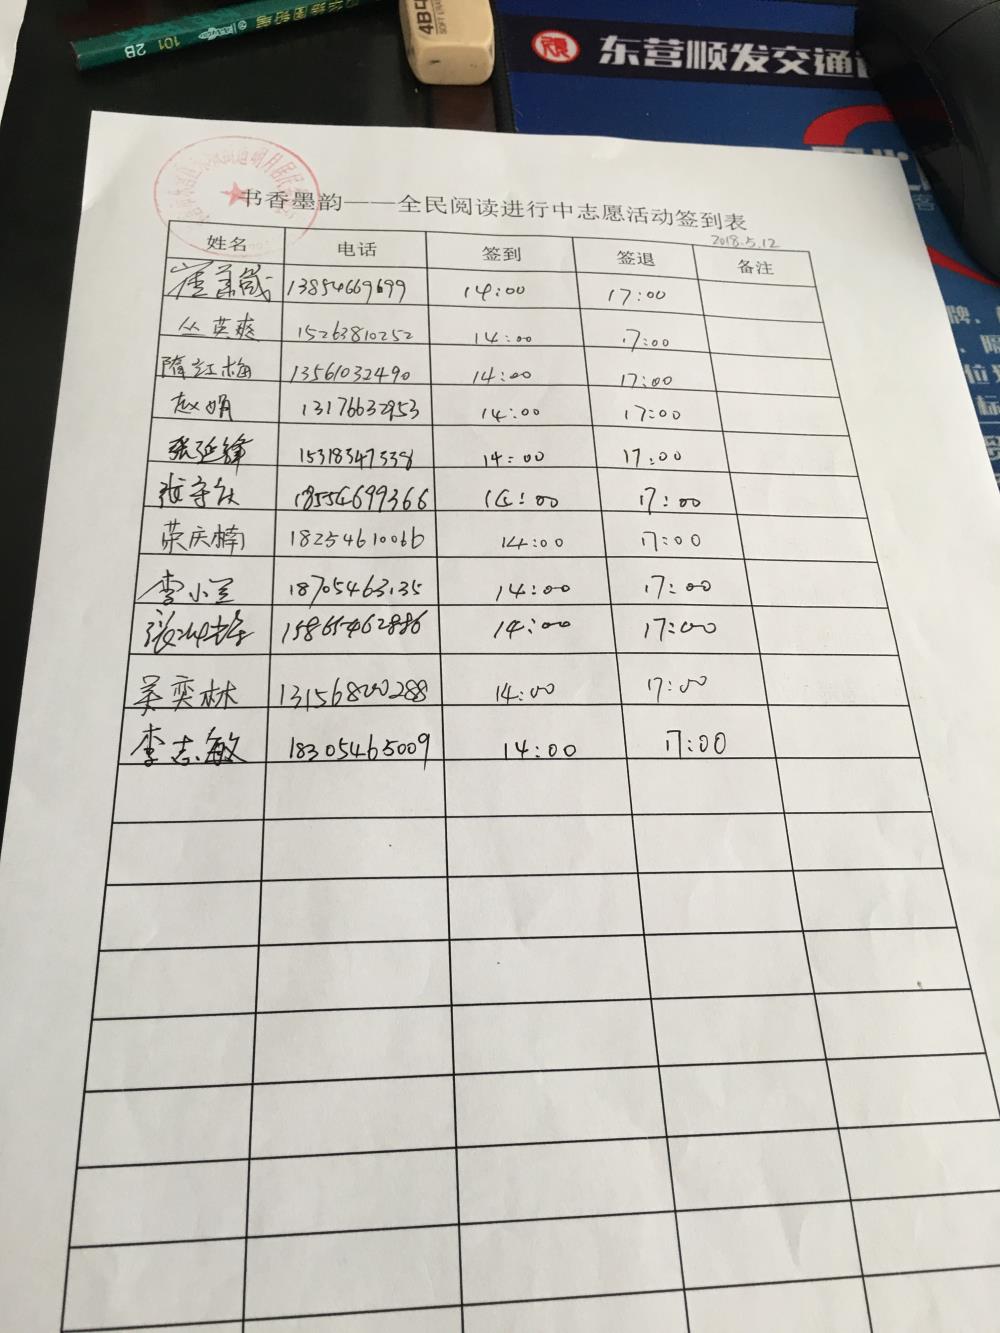 101 2B
4B
东营顺发交通
书香墨韵——全民阅读进行中志愿活动签到表
2018.5.12
姓名 电话 签到 签退 备注
13854669699 14:00 17:00
丛英爽 15263810252 14:00 17:00
隋红梅 13561032490 14:00 17:00
赵娟 13176632953 14:00 17:00
张延锋 15318347338 14:00 17:00
张守欣 18554699366 14:00 17:00
荣庆楠 18254610066 14:00 17:00
李小兰 18705463135 14:00 17:00
15865462886 14:00 17:00
吴奕林 13156800288 14:00 17:00
李志敏 18305465009 14:00 17:00